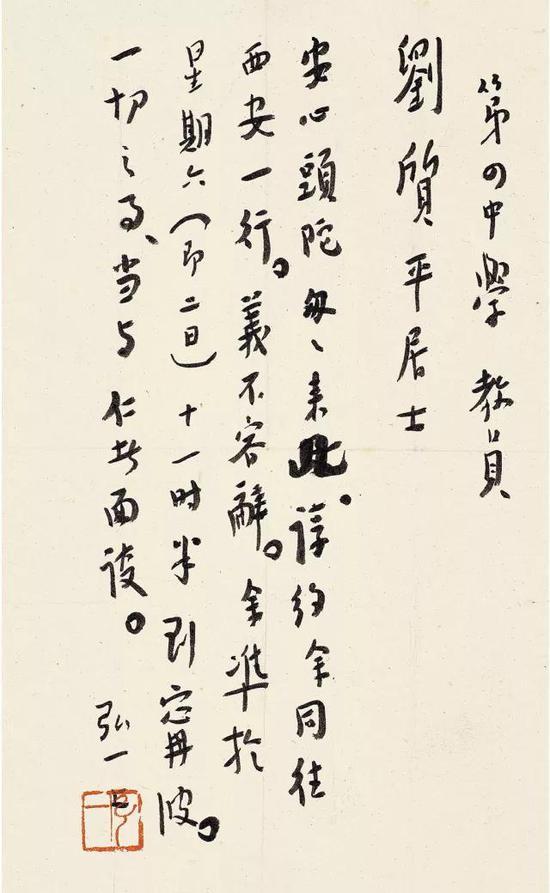 第四中學 教員
劉質平居士
安心頭陀匆〻来此。諄约余同往
西安一行。義不容辭。余準於
星期六（即二日）十一时半到甯波。
一切之事、当与仁者面談。
弘一